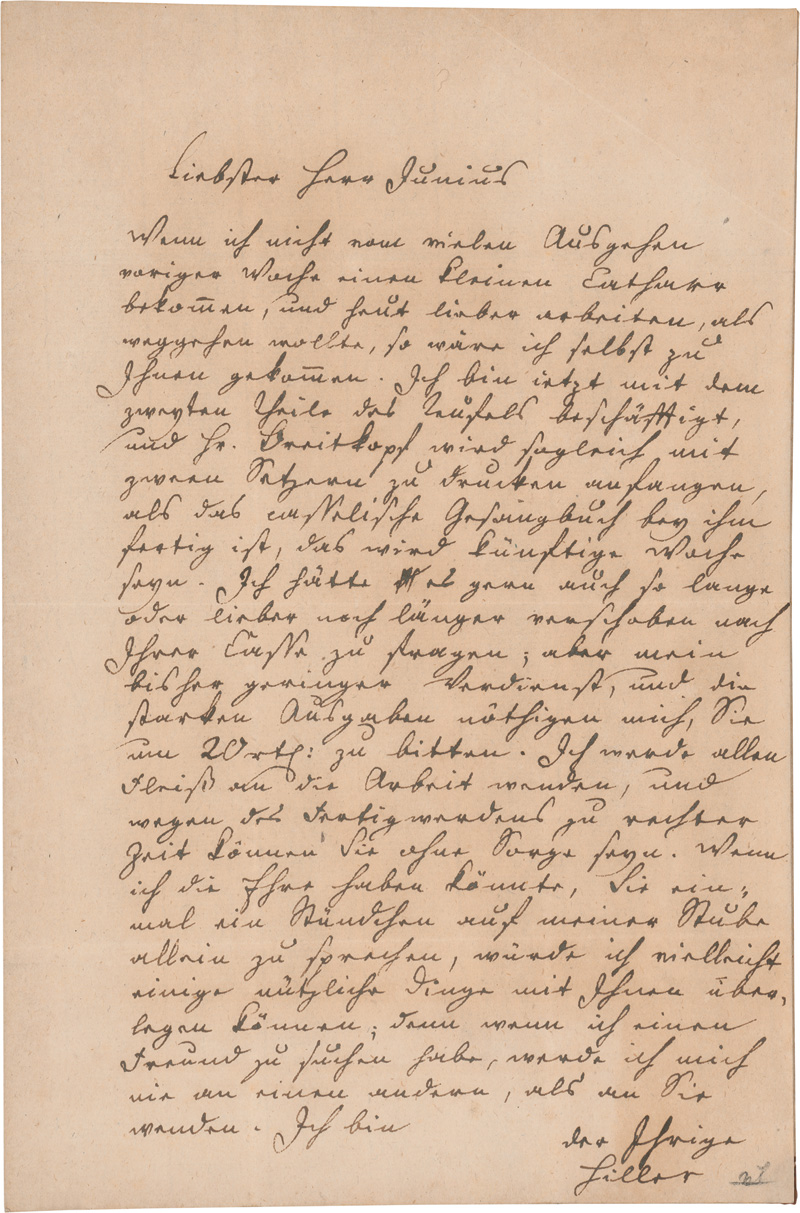 Liebster Herr Junius
Wenn ich nicht vom vielen Ausgehen
voriger Woche einen kleinen Catharr
bekom̅en, und heut lieber arbeiten, als
weggehen wollte, so wäre ich selbst zu
Ihnen gekom̅en. Ich bin ietzt mit dem
zweyten Theile des Teufels beschäfftigt,
und Hr. Breitkopf wird sogleich mit
zween Setzern zu drucken anfangen,
als das casselische Gesangbuch bey ihm
fertig ist, das wird künftige Woche
seyn. Ich hätte es gern auch so lange
oder lieber noch länger verschoben nach
Ihrer Casse zu fragen; aber mein
bisher geringer Verdienst, und die
starken Ausgaben nöthigen mich, Sie
um 20 rth: zu bitten. Ich werde allen
Fleiß an die Arbeit wenden, und
wegen des Fertigwerdens zu rechter
Zeit können Sie ohne Sorge seyn. Wenn
ich die Ehre haben könnte, Sie ein-
mal ein Stündchen auf meiner Stube
allein zu sprechen, würde ich vielleicht
einige nützliche Dinge mit Ihnen über-
legen können; denn wenn ich einen
Freund zu suchen habe, werde ich mich
nie an einen andern, als an Sie
wenden. Ich bin
der Ihrige
Hiller